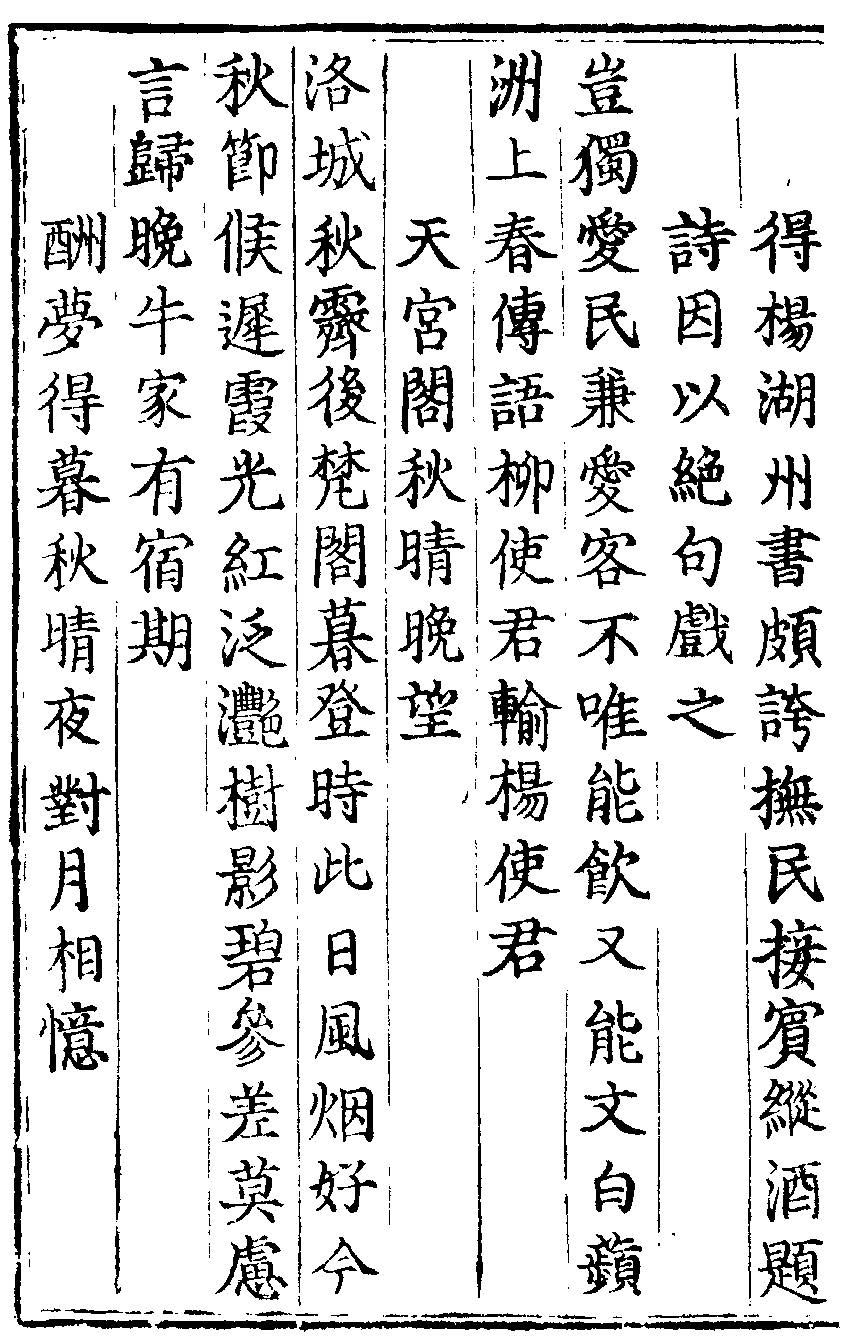 得楊湖州書頗誇撫民接賓縱酒題
詩因以絶句戲之
豈獨愛民兼愛客不唯能飲又能文白蘋
洲上春傳語柳使君輸楊使君
天宮閣秋晴晚望
洛城秋霽後梵閣暮登時此日風烟好今
秋節候遲霞光紅泛灩樹影碧參差莫慮
言歸晚牛家有宿期
酬夢得暮秋晴夜對月相憶